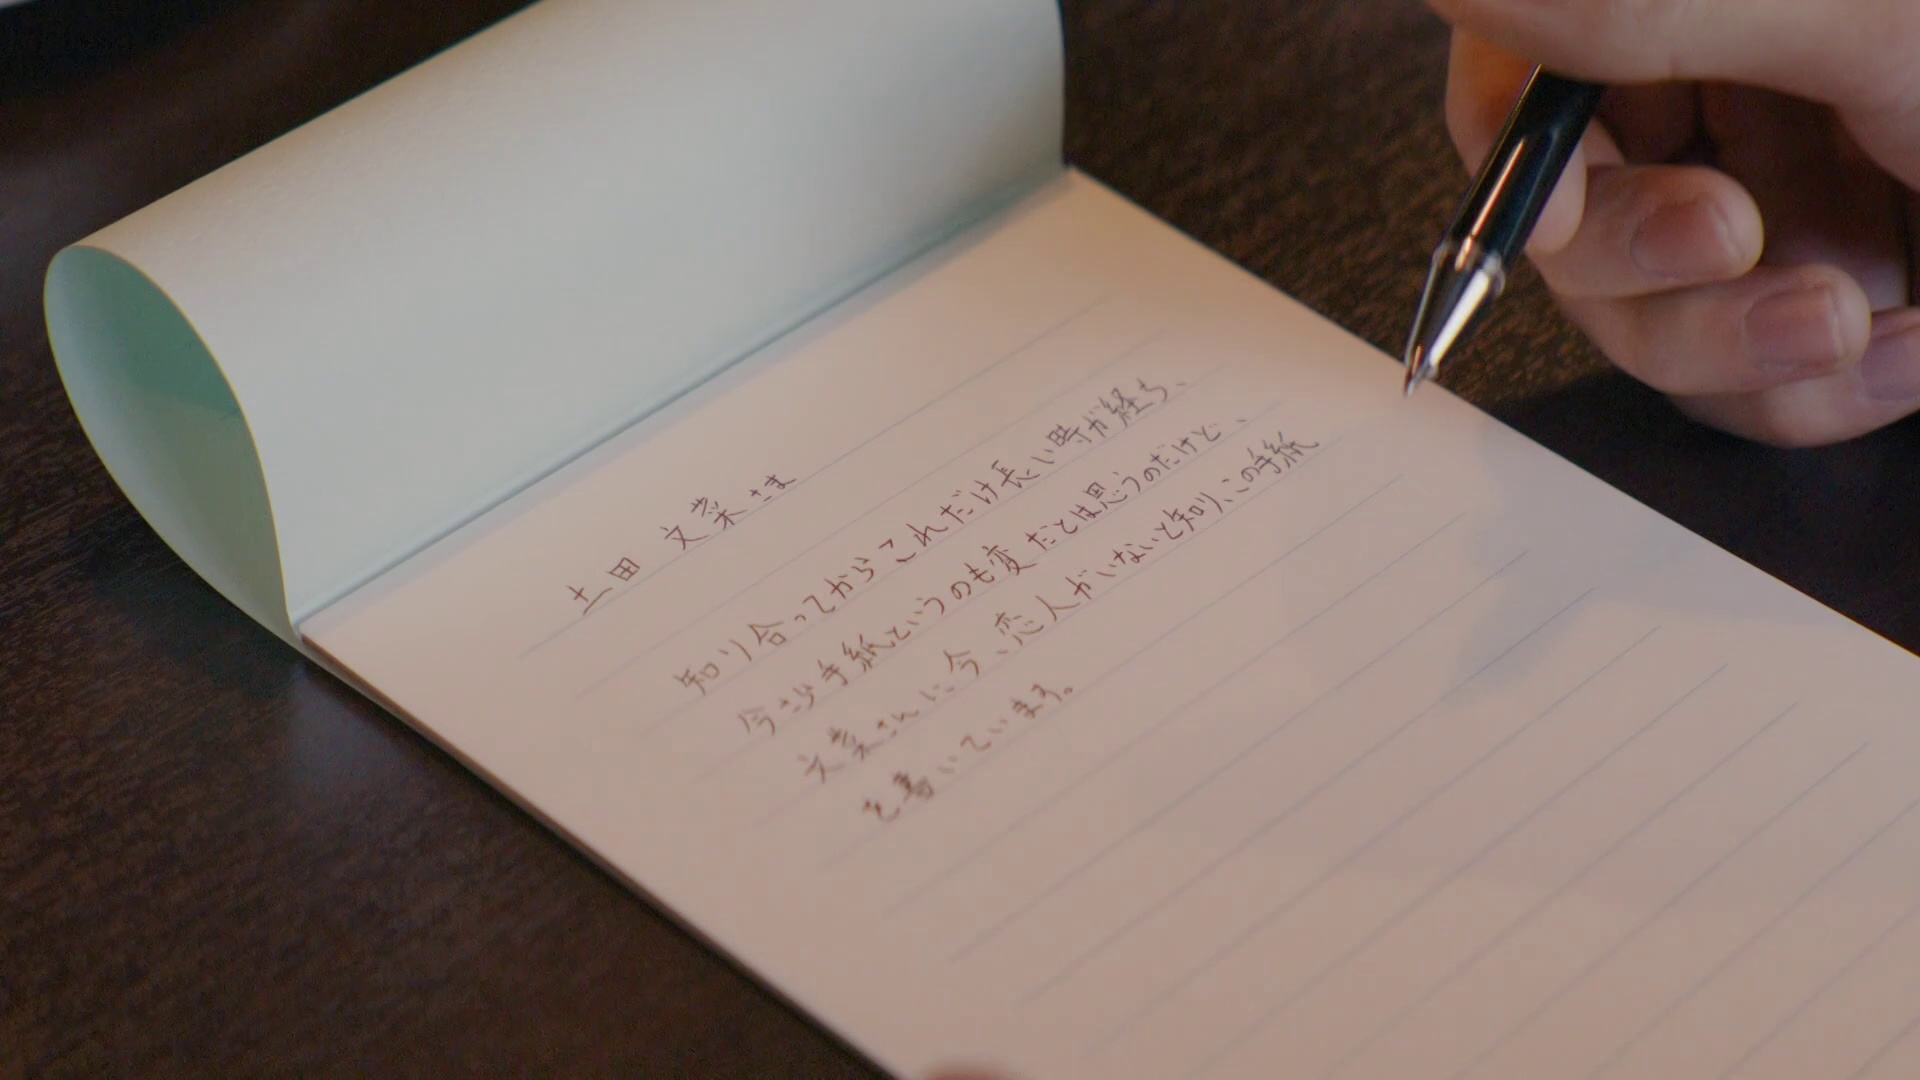 土田 文菜さま
知り合ってからこれだけ長い時が経ち、
今さら手紙というのも変だとは思うのだけど、
文菜さんに今、恋人がいないと知り、この手紙
を書いています。